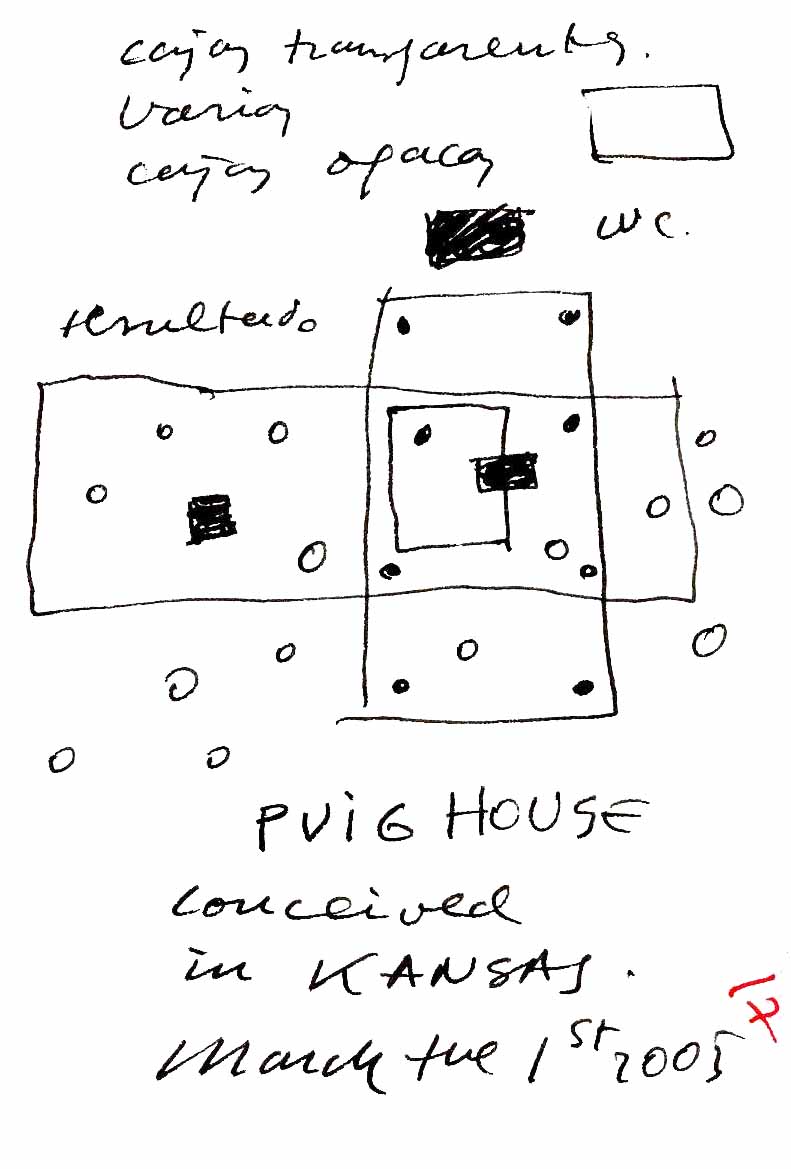 cajas transparentes.
varias
cajas opacas
WC.
resultado
PUIG HOUSE
conceived
in KANSAS.
March the 1st 2005